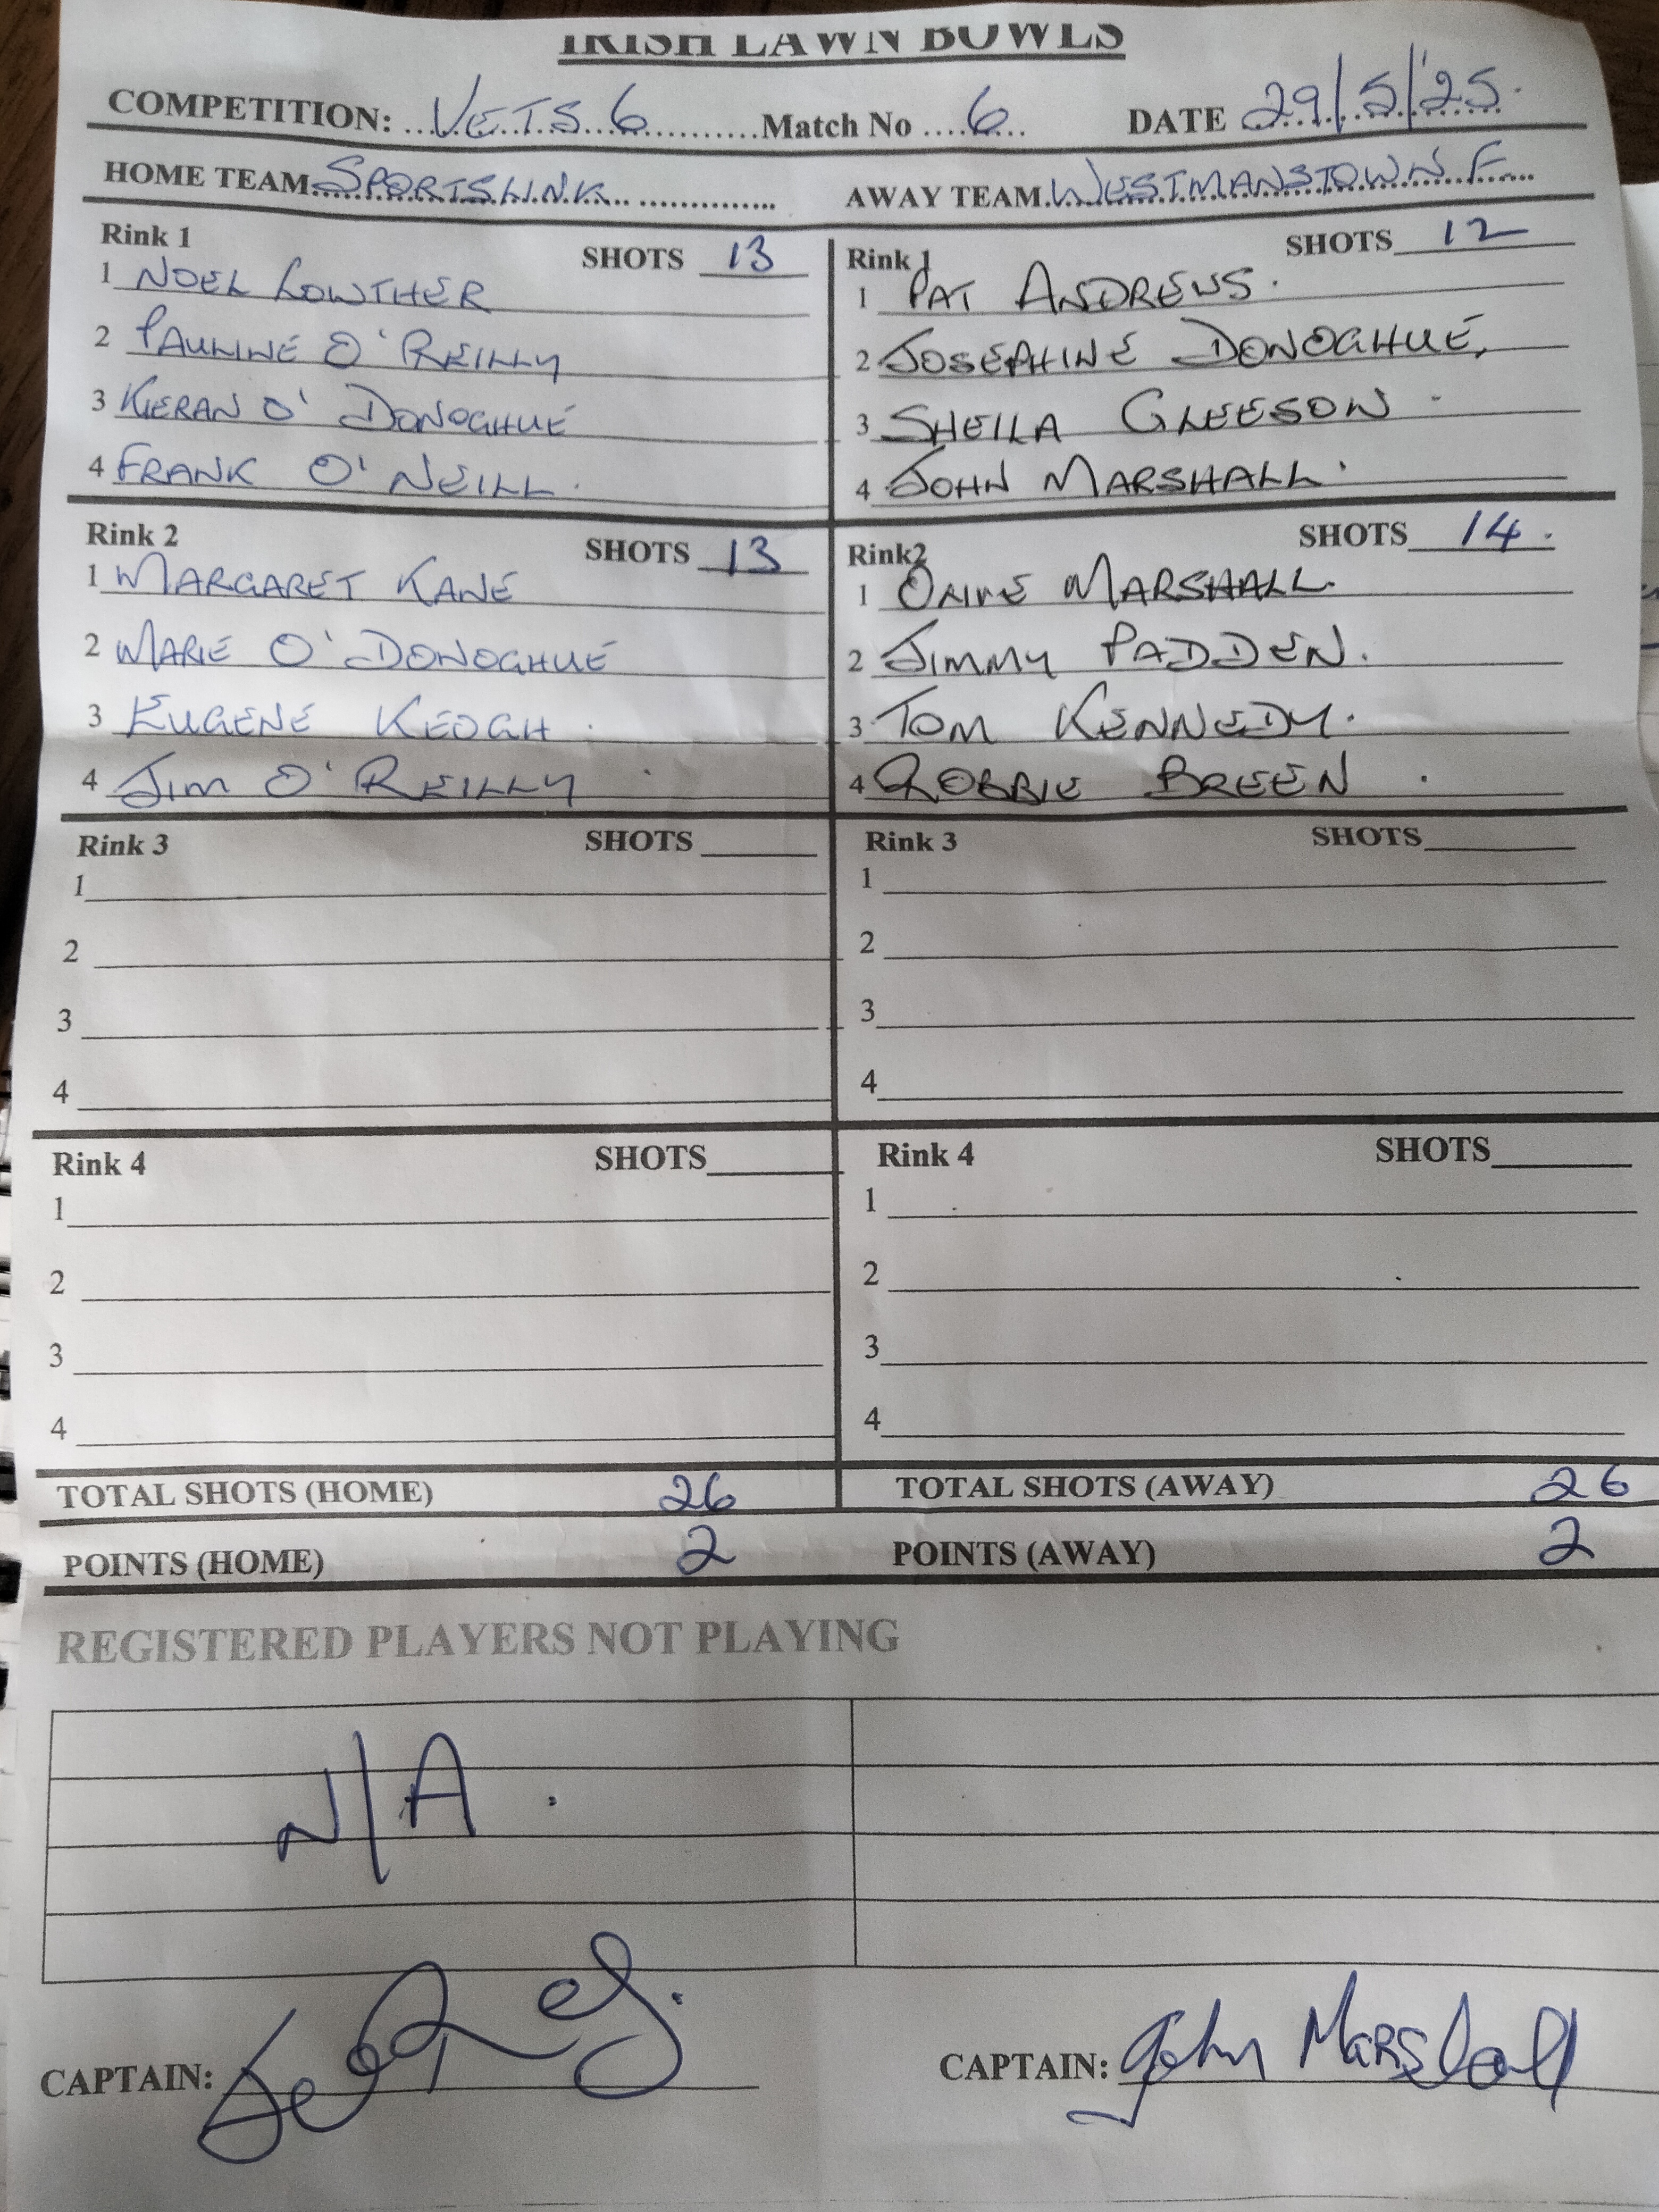 IRISH LAWN BOWLS
COMPETITION: ...VETS 6...........Match No ....6.... DATE 29/5/'25.
HOME TEAM SPORTSLINK AWAY TEAM WESTMANSTOWN F
Rink 1 SHOTS 13
1 NOEL LOWTHER
2 PAULINE O'REILLY
3 KIERAN O'DONOGHUE
4 FRANK O'NEILL.
Rink 1 SHOTS 12
1 PAT ANDREWS.
2 JOSEPHINE DONOGHUE,
3 SHEILA GLEESON
4 JOHN MARSHALL.
Rink 2 SHOTS 13
1 MARGARET KANE
2 MARIE O'DONOGHUE
3 EUGENE KEOGH.
4 JIM O'REILLY
Rink2 SHOTS 14.
1 OLIVE MARSHALL.
2 JIMMY PADDEN.
3 TOM KENNEDY.
4 ROBBIE BREEN.
Rink 3 SHOTS
1
2
3
4
Rink 3 SHOTS
1
2
3
4
Rink 4 SHOTS
1
2
3
4
Rink 4 SHOTS
1
2
3
4
TOTAL SHOTS (HOME) 26 TOTAL SHOTS (AWAY) 26
POINTS (HOME) 2 POINTS (AWAY) 2
REGISTERED PLAYERS NOT PLAYING
N/A.
CAPTAIN: CAPTAIN: John Marshall